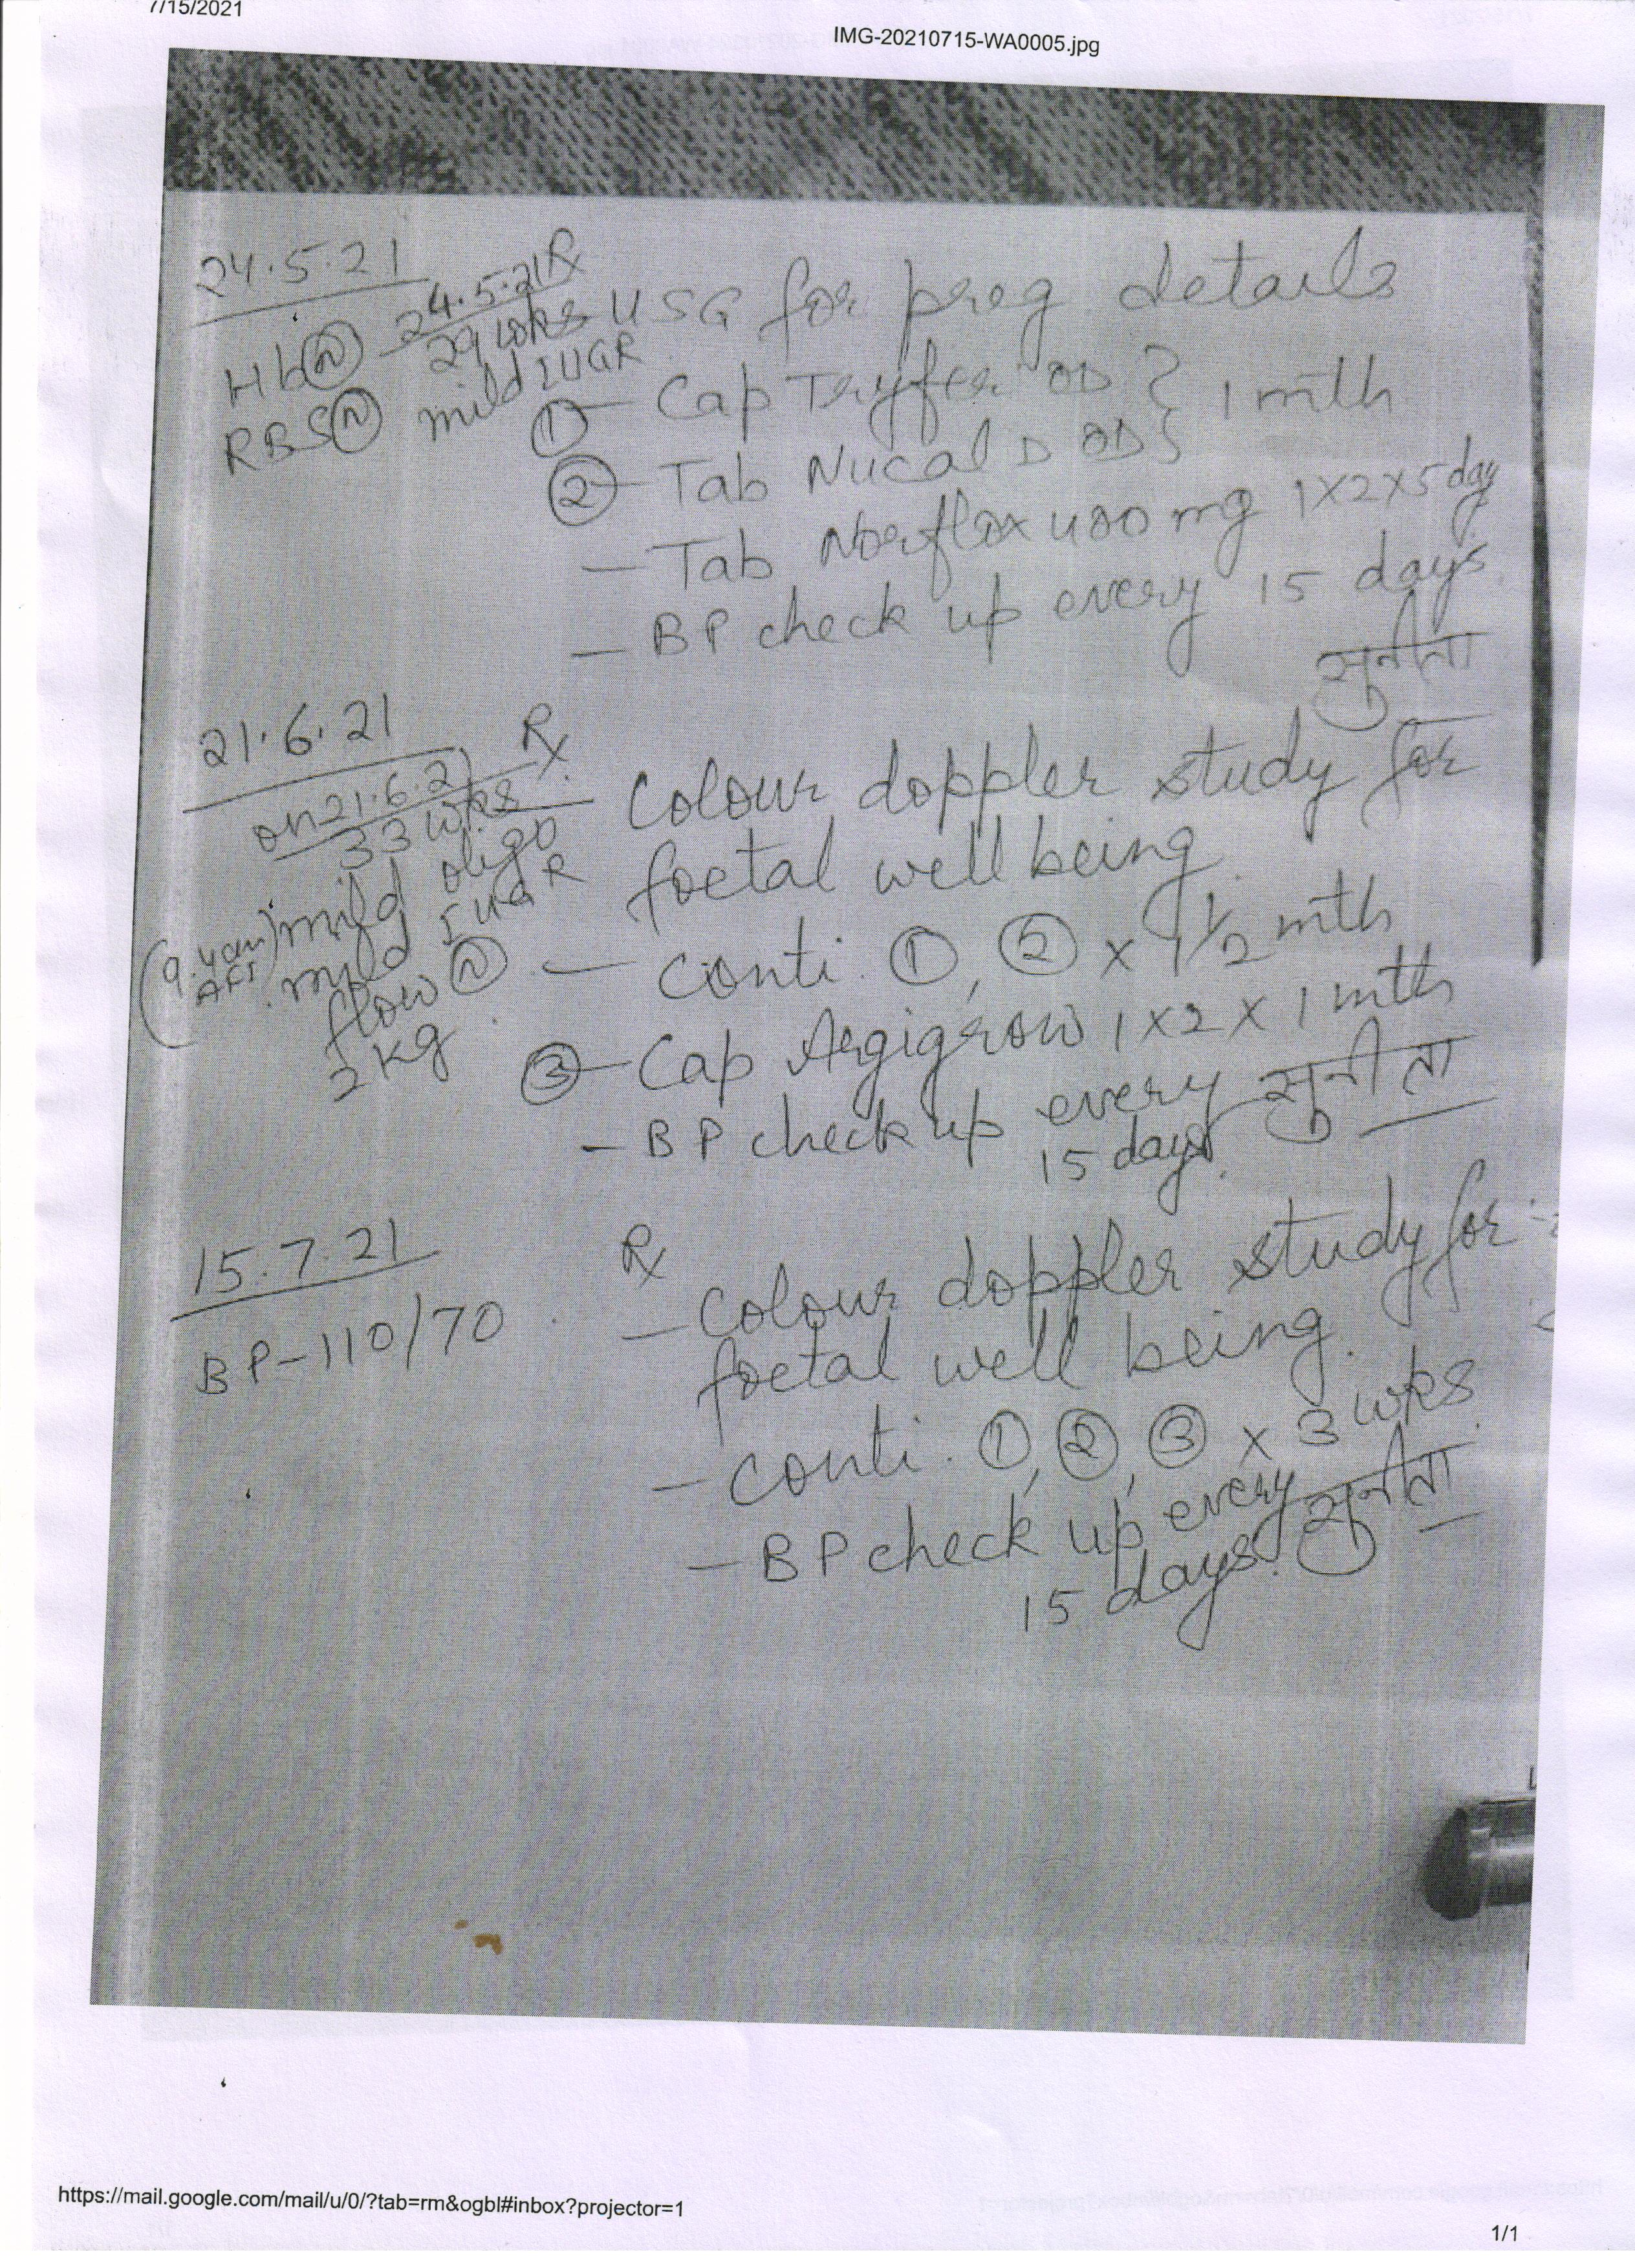 7/15/2021
IMG-20210715-WA0005.jpg
24.5.21
Hb(N) 24.5.21
RBS(N) 29 wks
mild IUGR
Rx
USG for preg details
① – Cap Tryfer OD } 1 mth
② – Tab Nucal D OD }
– Tab Norflox 400 mg 1x2x5 day
– BP check up every 15 days
सुनीता
21.6.21
on 21.6.21
33 wks
mild oligo
(9.4cm AFI) mild IUGR
flow (N)
2 kg
Rx
Colour doppler study for
foetal well being
– conti. ①, ② x 1 1/2 mth
③ – Cap Argigrow 1x2x1 mth
– BP check up every
15 days.
सुनीता
15.7.21
BP-110/70
Rx
– Colour doppler study for
foetal well being.
– conti. ①, ②, ③ x 3 wks
– BP check up every
15 days.
सुनीता
https://mail.google.com/mail/u/0/?tab=rm&ogbl#inbox?projector=1
1/1